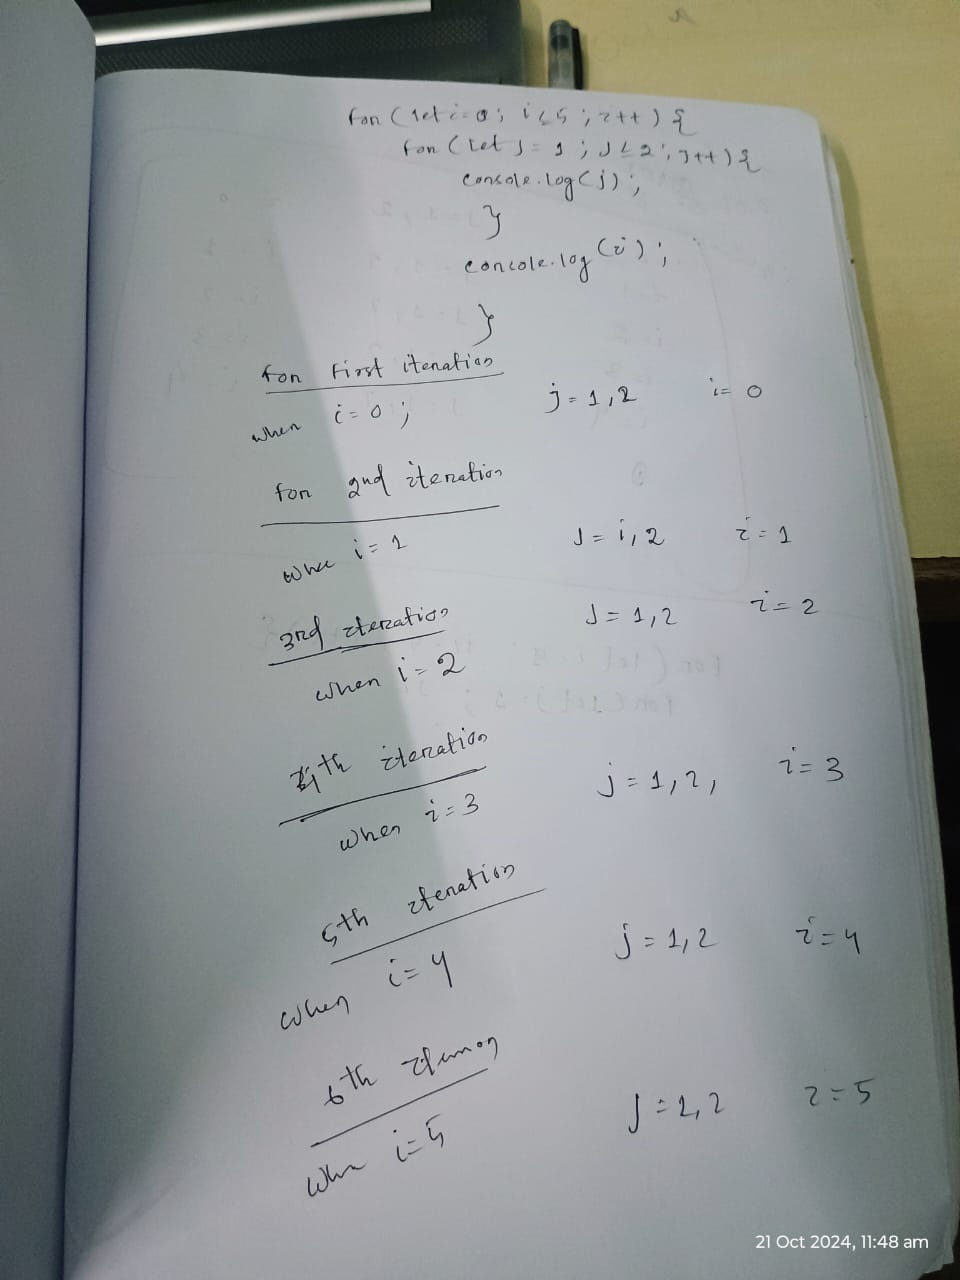 for (let i=0; i≤5; i++) {
for (let J = 1; J ≤ 2; J++) {
console.log(j);
}
concole.log(i);
}
for First iteration
when i=0; j=1,2 i=0
for 2nd iteration
i=1 J=i,2 i=1
3rd iteration J=1,2 i=2
when i=2
4th iteration
when i=3 j=1,2, i=3
5th iteration
when i=4 j=1,2 i=4
6th
i=5 J=1,2 i=5
21 Oct 2024, 11:48 am